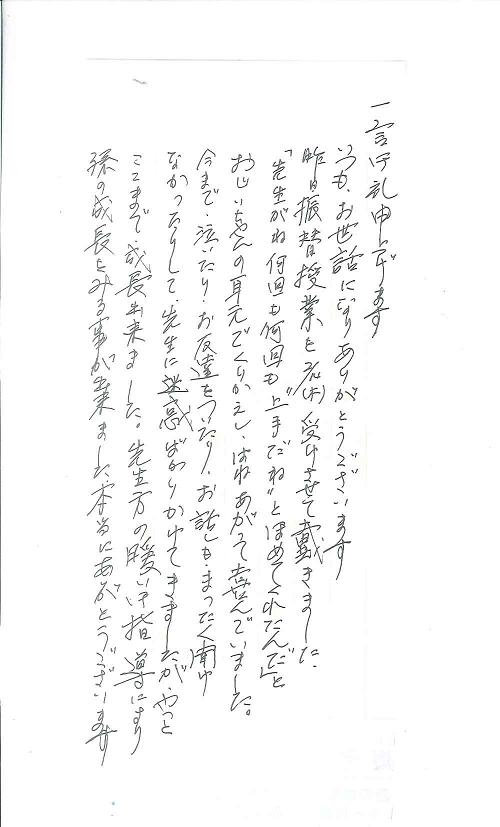 一言御礼申し上げます
いつも、お世話になりありがとうございます
昨日振替授業を2/5(木)受けさせて戴きました、
「先生がね何回も何回も〝上手だね〟とほめてくれたんだ」と
おじいちゃんの耳元でくりかえし、はねあがって喜んでいました。
今まで、泣いたり、お友達をついたり、お話しも、まったく聞け
なかったりして、先生に迷惑ばかりかけてきましたが、やっと
ここまで成長出来ました。先生方の暖い御指導により
孫の成長をみる事が出来ました、本当にありがとうございます